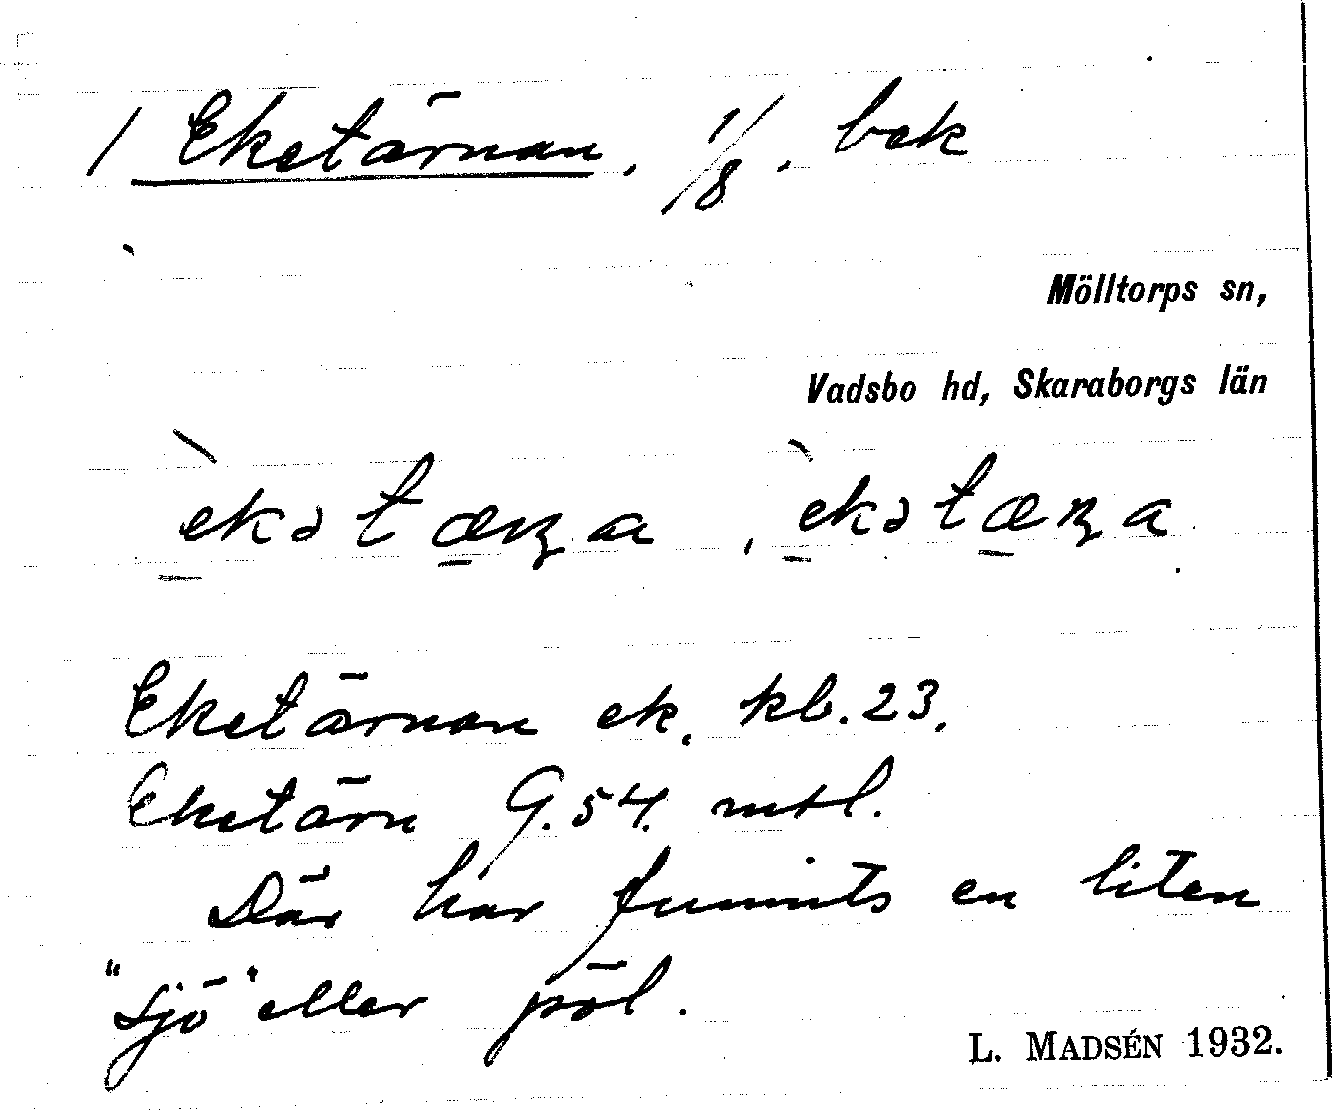 1 Eketärnan. 1/8. bek
Mölltorps sn,
Vadsbo hd, Skaraborgs län
`ekətæɳa, `ekətæɳa
Eketärnan ek. kb. 23.
Eketärn G. 54. mtl.
Där har funnits en liten
"sjö" eller pöl.
L. MADSÉN 1932.